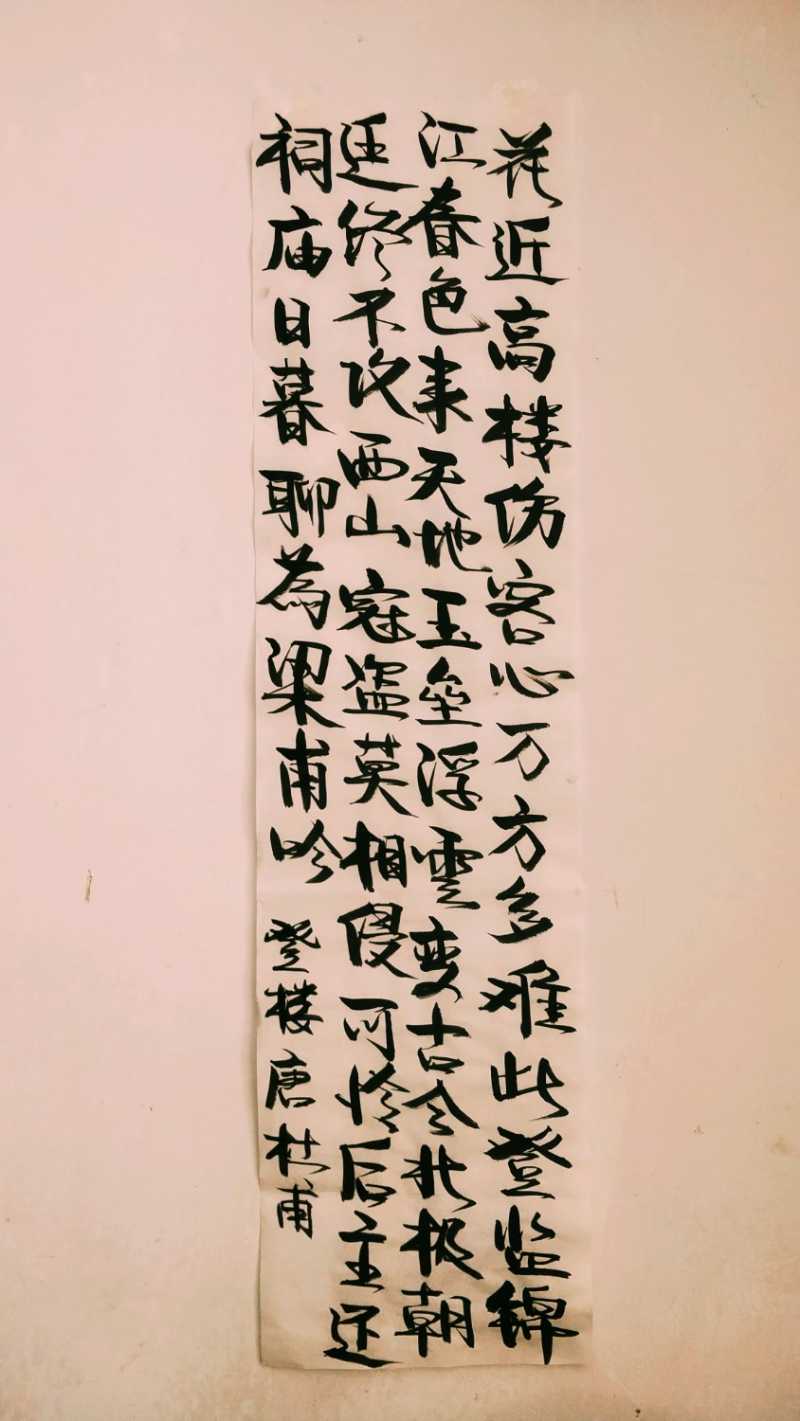 花近高楼伤客心万方多难此登监锦
江春色来天地玉垒浮雲变古今北极朝
廷终不改西山寇盗莫相侵可怜后主还
祠庙日暮聊為梁甫吟 登楼唐杜甫